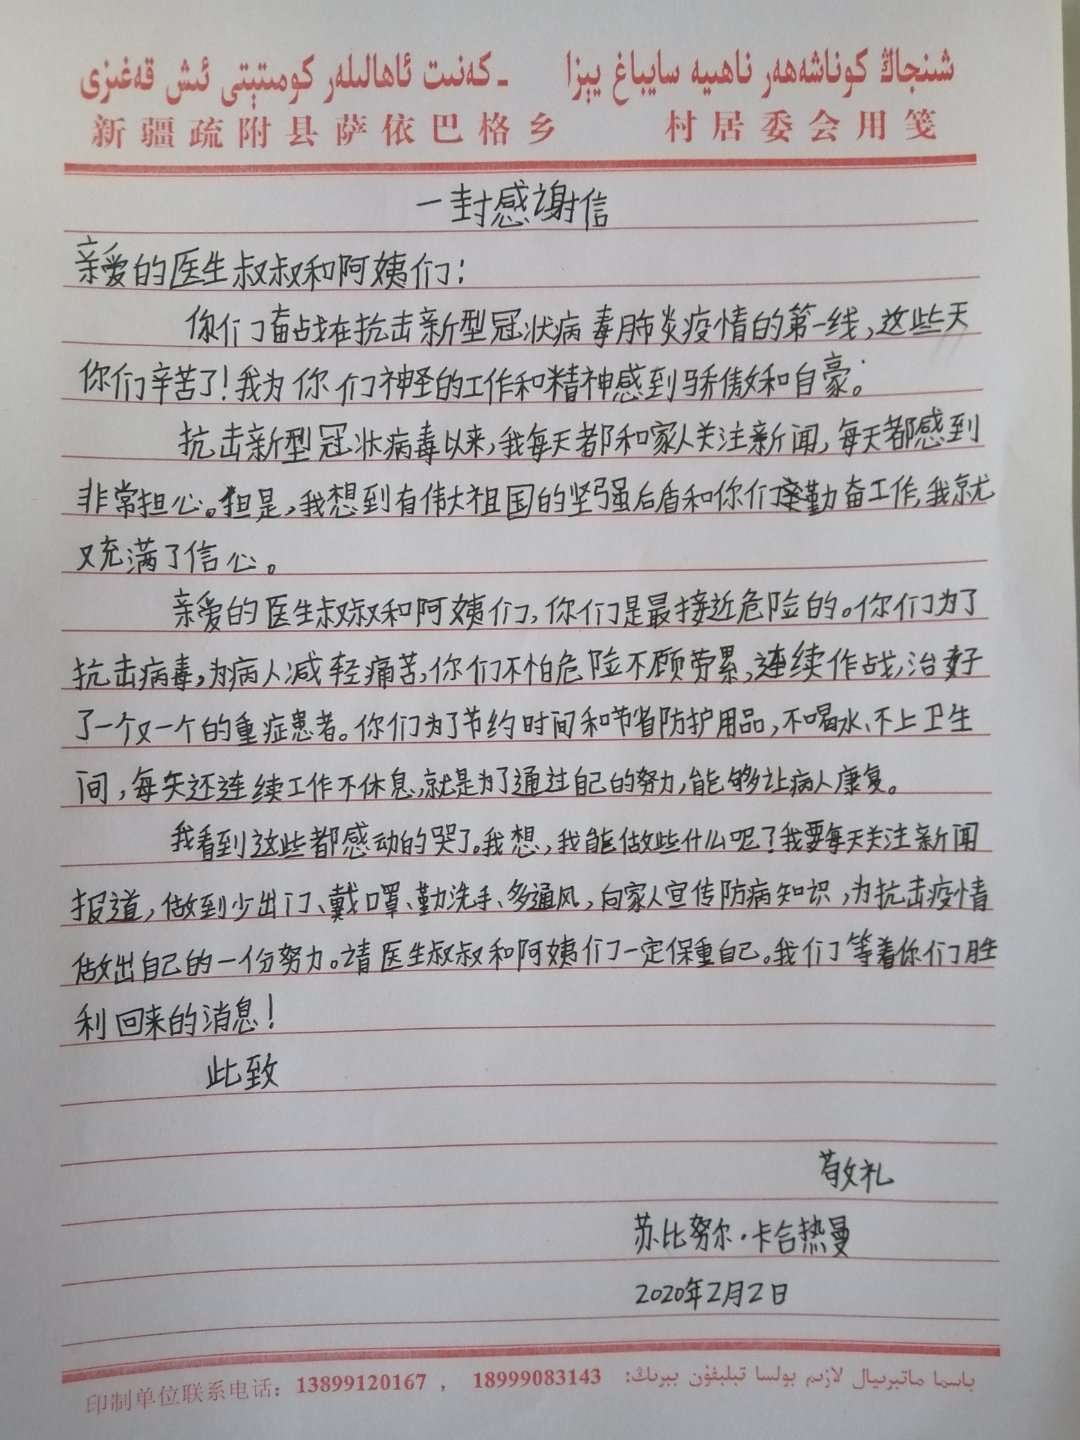 شىنجاڭ كوناشەھەر ناھىيە سايباغ يېزا - كەنىت ئاھالىلەر كومىتېتى ئىش قەغىزى
新疆疏附县萨依巴格乡 村居委会用笺
一封感谢信
亲爱的医生叔叔和阿姨们：
你们奋战在抗击新型冠状病毒肺炎疫情的第一线，这些天
你们辛苦了！我为你们神圣的工作和精神感到骄傲和自豪。
抗击新型冠状病毒以来，我每天都和家人关注新闻，每天都感到
非常担心。但是，我想到有伟大祖国的坚强后盾和你们勤奋工作，我就
又充满了信心。
亲爱的医生叔叔和阿姨们，你们是最接近危险的。你们为了
抗击病毒，为病人减轻痛苦，你们不怕危险不顾劳累，连续作战，治好
了一个又一个的重症患者。你们为了节约时间和节省防护用品，不喝水、不上卫生
间，每天还连续工作不休息，就是为了通过自己的努力，能够让病人康复。
我看到这些都感动的哭了。我想，我能做些什么呢？我要每天关注新闻
报道，做到少出门、戴口罩、勤洗手、多通风，向家人宣传防病知识，为抗击疫情
做出自己的一份努力。请医生叔叔和阿姨们一定保重自己。我们等着你们胜
利回来的消息！
此致
敬礼
苏比努尔·卡合热曼
2020年2月2日
印制单位联系电话：13899120167， 18999083143 باسما ماتېرىيال لازىم بولسا تېلېفون بېرىڭ: